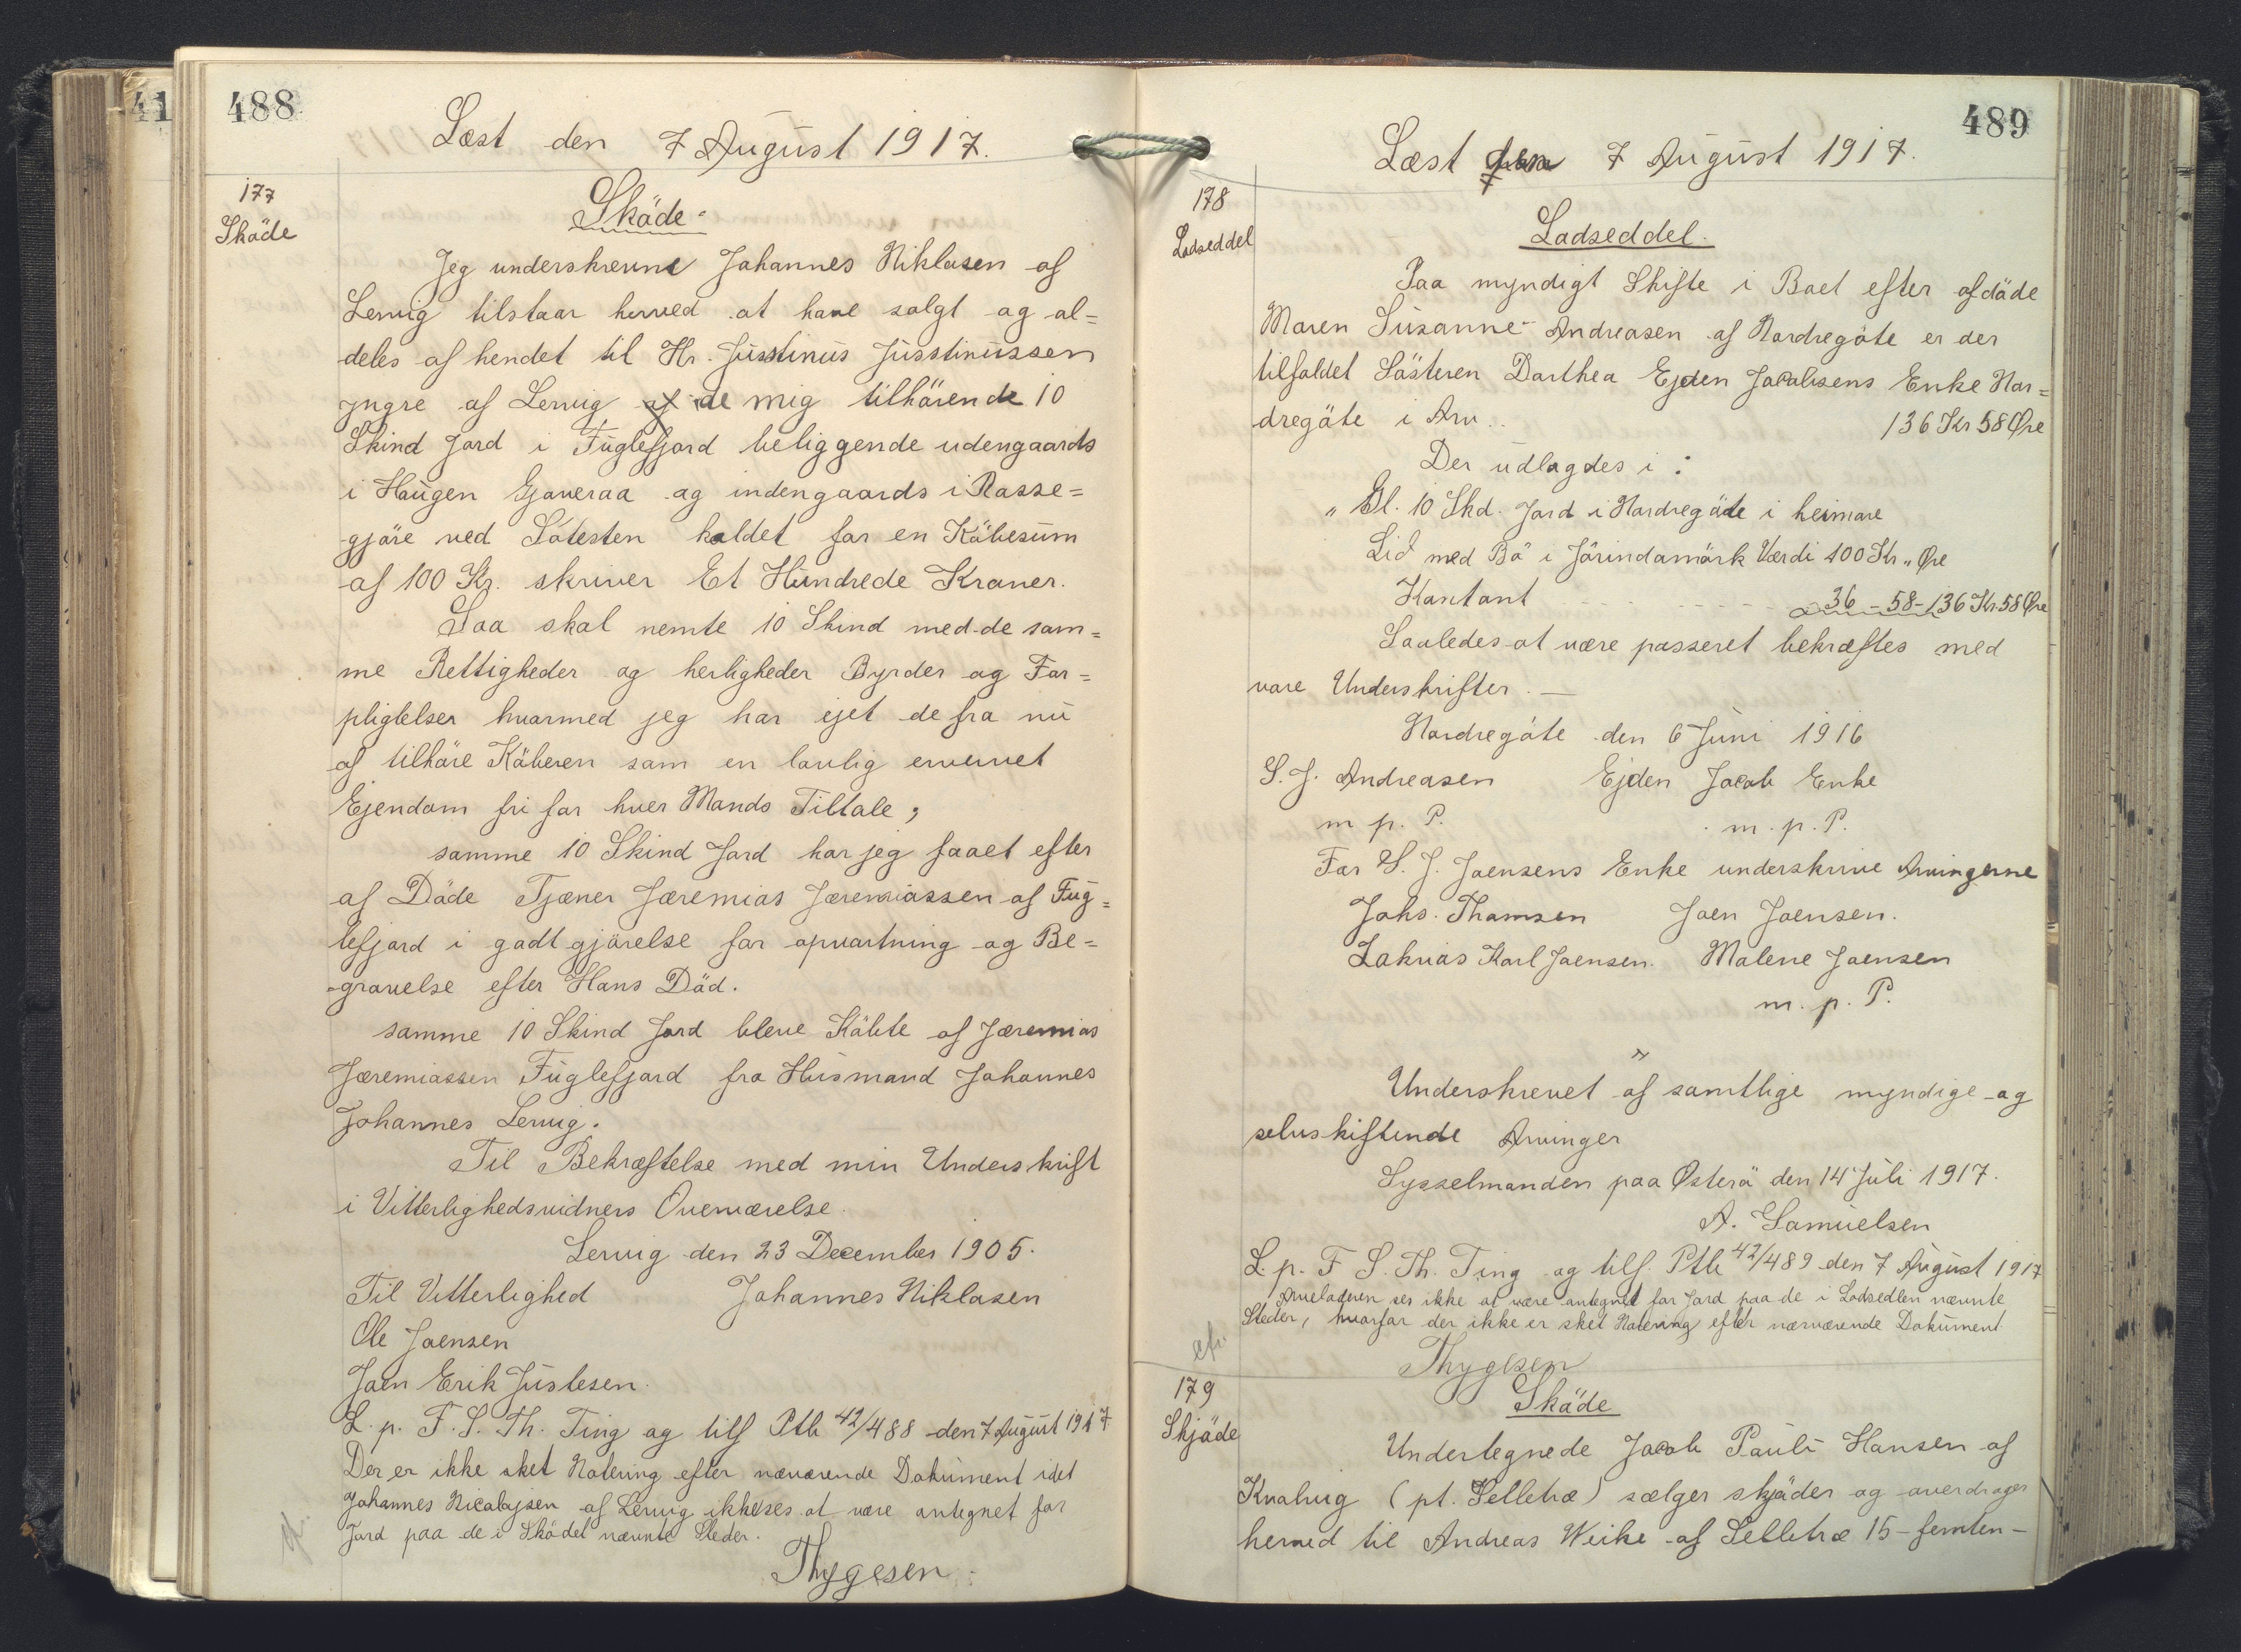 41
488
Læst den 7 August 1917.
177
Skäde
Skäde.
Jeg underskrevne Johannes Niklasen af
Lervig tilstaar herved at have solgt og al=
deles af hendet til Hr. Jusstinus Jusstinussen
yngre af Lervig de mig tilhärende 10
Skind Jord i Fuglefjord beliggende udengaards
i Haugen Gjaveraa og indengaards i Rasse=
gjäre ved Sätesten kaldet for en Käbesum
af 100 Kr. skriver Et Hundrede Kroner.
Saa skal nemte 10 Skind med de sam=
me Rettigheder og herligheder Byrder og For=
pligtelser hvormed jeg har ejet de fra nu
af tilhäre Käberen som en lovlig ervervet
Ejendom fri for hver Mands Tiltale;
samme 10 Skind Jord har jeg faaet efter
af Däde Tjæner Jæremias Jæremiassen af Fug=
lefjord i godtgjärelse for opvartning og Be=
gravelse efter Hans Däd.
samme 10 Skind Jord bleve Käbte af Jæremias
Jæremiassen Fuglefjord fra Husmand Johannes
Johannes Lervig.
Til Bekræftelse med min Underskrift
i Vitterlighedsvidners Overværelse.
Lervig den 23 December 1905.
Til Vitterlighed Johannes Niklasen
Ole Joensen
Joen Erik Justesen.
L. p. F. S. Th. Ting og tilf Ptb 42/488 den 7 August 1917
Der er ikke sket Notering efter nærværende Dokument idet
Johannes Nicolajsen af Lervig ikke ses at være antegnet for
Jord paa de i Skädet nævnte Steder.
Thygesen
489
Læst den 7 August 1917.
178
Lodseddel
Lodseddel.
Paa myndigt Skifte i Boet efter afdäde
Maren Susanne Andreasen af Nordregäte er der
tilfaldet Sästeren Dorthea Ejden Jacobsens Enke Nor=
dregäte i Arv.. 136 Kr 58 Øre
Der udlagdes i:
" Gl. 10 Skd. Jord i Nordregäte i heimare
Lid med Bä i Järindamärk Værdi 100 Kr " Øre
Kontant 36 - 58 - 136 Kr 58 Øre
Saaledes at være passeret bekræftes med
vore Underskrifter. —
Nordregäte den 6 Juni 1916
S. J. Andreasen Ejden Jacob Enke
m p. P. m. p. P.
For S. J. Joensens Enke underskrive Arvingerne
Johs. Thomsen Joen Joensen.
Zakrias Karl Joensen. Malene Joensen
m. p. P.
Underskrevet af samtlige myndige og
selvskiftende Arvinger
Sysselmanden paa Østerä den 14 Juli 1917.
A. Samuelsen
L. p. F S. Th. Ting og tilf. Ptb 42/489 den 7 August 1917
Arveladeren ses ikke at være antegnet for Jord paa de i Lodsedlen nævnte
Steder, hvorfor der ikke er sket Notering efter nærværende Dokument.
Thygesen
179
Skjäde
Skäde
Undertegnede Jacob Pauli Hansen af
Kvalvig (pt. Selletræ) sælger skjäder og overdrager
herved til Andreas Weihe af Selletræ 15 - femten -